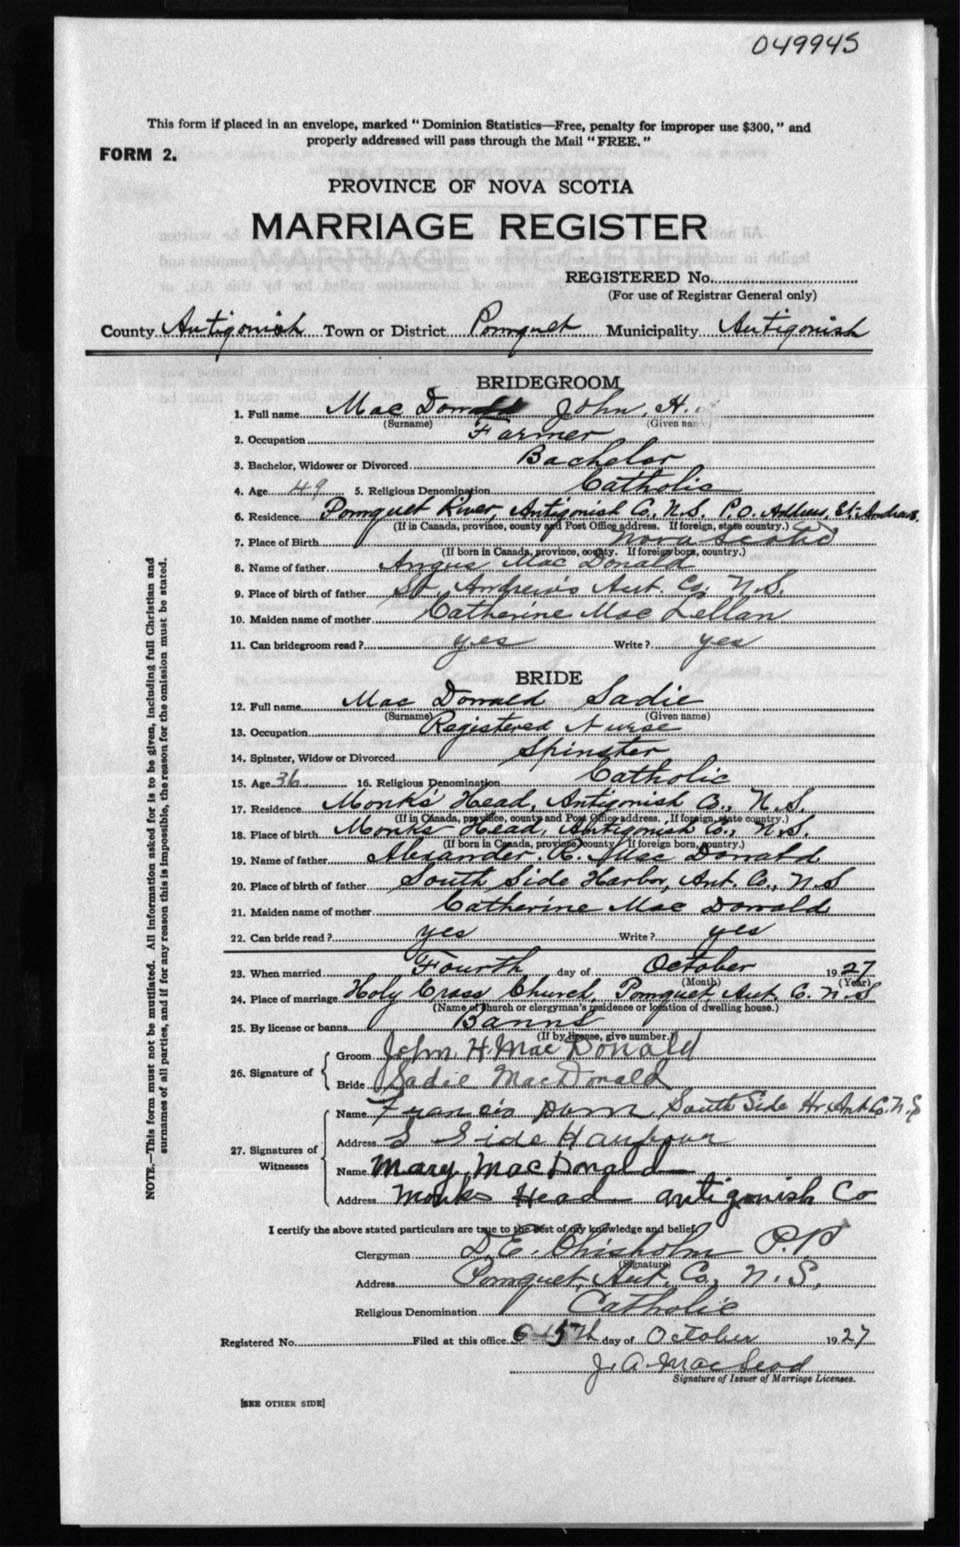 049945
This form if placed in an envelope, marked "Dominion Statistics—Free, penalty for improper use $300," and
properly addressed will pass through the Mail "FREE."
FORM 2.
PROVINCE OF NOVA SCOTIA
MARRIAGE REGISTER
REGISTERED No.
(For use of Registrar General only)
County Antigonish Town or District Pomquet Municipality Antigonish
BRIDEGROOM
1. Full name Mac Donald John. H.
(Surname) (Given name)
2. Occupation Farmer
3. Bachelor, Widower or Divorced Bachelor
4. Age 49 5. Religious Denomination Catholic
6. Residence Pomquet River, Antigonish Co., N.S. P.O. Address, St. Andrews.
(If in Canada, province, county and Post Office address. If foreign, state country.)
7. Place of Birth Nova Scotia
(If born in Canada, province, county. If foreign born, country.)
8. Name of father Angus Mac Donald
9. Place of birth of father St. Andrews Ant. Co. N.S.
10. Maiden name of mother Catherine Mac Lellan
11. Can bridegroom read? yes Write? yes
BRIDE
12. Full name Mac Donald Sadie
(Surname) (Given name)
13. Occupation Registered Nurse
14. Spinster, Widow or Divorced Spinster
15. Age 36 16. Religious Denomination Catholic
17. Residence Monks' Head, Antigonish Co., N.S.
(If in Canada, province, county and Post Office address. If foreign, state country.)
18. Place of birth Monks Head, Antigonish Co., N.S.
(If born in Canada, province, county If foreign born, country.)
19. Name of father Alexander. R. Mac Donald
20. Place of birth of father South Side Harbor, Ant. Co., N.S
21. Maiden name of mother Catherine Mac Donald
22. Can bride read? yes Write? yes
23. When married Fourth day of October 1927
(Month) (Year)
24. Place of marriage Holy Cross Church, Pomquet, Ant. Co. N.S
(Name of church or clergyman's residence or location of dwelling house.)
25. By license or banns Banns
(If by license, give number.)
26. Signature of { Groom John H. MacDonald
Bride Sadie MacDonald
27. Signatures of Witnesses { Name Francis South Side Hr Ant Co. N.S
Address S Side Harbour
Name Mary MacDonald
Address Monks Head Antigonish Co
I certify the above stated particulars are true to the best of my knowledge and belief.
Clergyman D. E. Chisholm P.P.
(Signature)
Address Pomquet, Ant. Co., N.S.
Religious Denomination Catholic
Registered No. Filed at this office 15th day of October 1927
J. A. MacLeod
Signature of Issuer of Marriage Licenses.
[SEE OTHER SIDE]
NOTE.—This form must not be mutilated. All information asked for is to be given, including full Christian and
surnames of all parties, and if for any reason this is impossible, the reason for the omission must be stated.